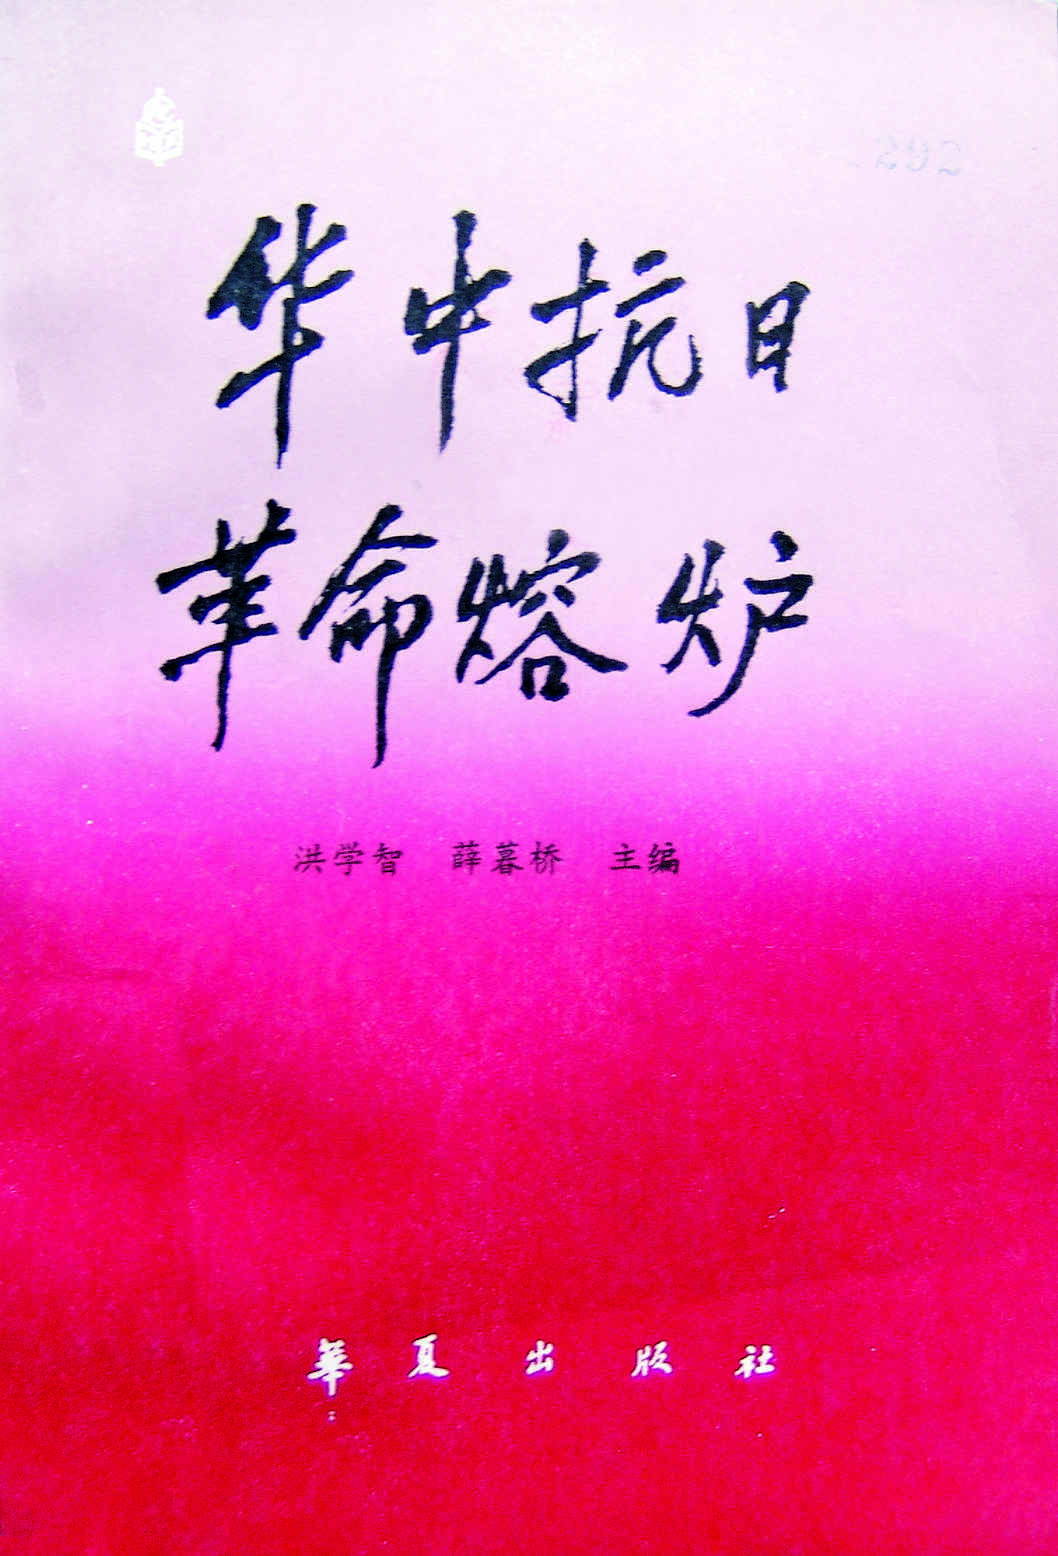 292
华中抗日
革命熔炉
洪学智 薛暮桥 主编
華夏出版社